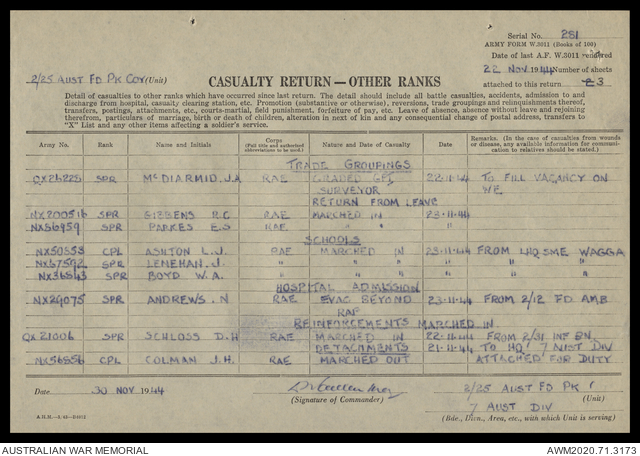 Serial No. 281
ARMY FORM W.3011 (Books of 100)
Date of last A.F. W.3011 rendered
22 NOV 1944 Number of sheets
attached to this return
2/25 AUST FD PK COY (Unit)
CASUALTY RETURN — OTHER RANKS
Detail of casualties to other ranks which have occurred since last return. The detail should include all battle casualties, accidents, admission to and
discharge from hospital, casualty clearing station, etc. Promotion (substantive or otherwise), reversions, trade groupings and relinquishments thereof,
transfers, postings, attachments, etc., courts-martial, field punishment, forfeiture of pay, etc. Leave of absence, absence without leave and rejoining
therefrom, particulars of marriage, birth or death of children, alteration in next of kin and any consequential change of postal address, transfers to
"X" List and any other items affecting a soldier's service.
Army No. Rank Name and Initials Corps (Full title and authorized abbreviations to be used.) Nature and Details of Casualty Date Remarks. (In the case of casualties from wounds or disease, any available information for communication to relatives should be stated.)
TRADE GROUPINGS
QX26225 SPR McDIARMID. J.A RAE GRADED GPI 22-11-44 TO FILL VACANCY ON
SURVEYOR WE
RETURN FROM LEAVE
NX200516 SPR GIBBENS R.C RAE MARCHED IN 23-11-44
NX56959 SPR PARKES E.S RAE " " "
SCHOOLS
NX50553 CPL ASHTON L.J. RAE MARCHED IN 23-11-44 FROM LHQ SME WAGGA
NX67592 SPR LENEHAN. J. " " " " "
NX36543 SPR BOYD W.A. " " " " "
HOSPITAL ADMISSION
NX29075 SPR ANDREWS. N RAE EVAC BEYOND 23-11-44 FROM 2/12 FD AMB
RAP
REINFORCEMENTS MARCHED IN
QX21006 SPR SCHLOSS D.H RAE MARCHED IN 22-11-44 FROM 2/31 INF BN
DETACHMENTS 21-11-44 TO HQ 7 AUST DIV
NX56856 CPL COLMAN J.H. RAE MARCHED OUT ATTACHED FOR DUTY
Date 30 NOV 1944
(Signature of Commander)
2/25 AUST FD PK
7 AUST DIV
(Bde., Divn., Area, etc., with which Unit is serving)
AUSTRALIAN WAR MEMORIAL AWM2020.71.3173